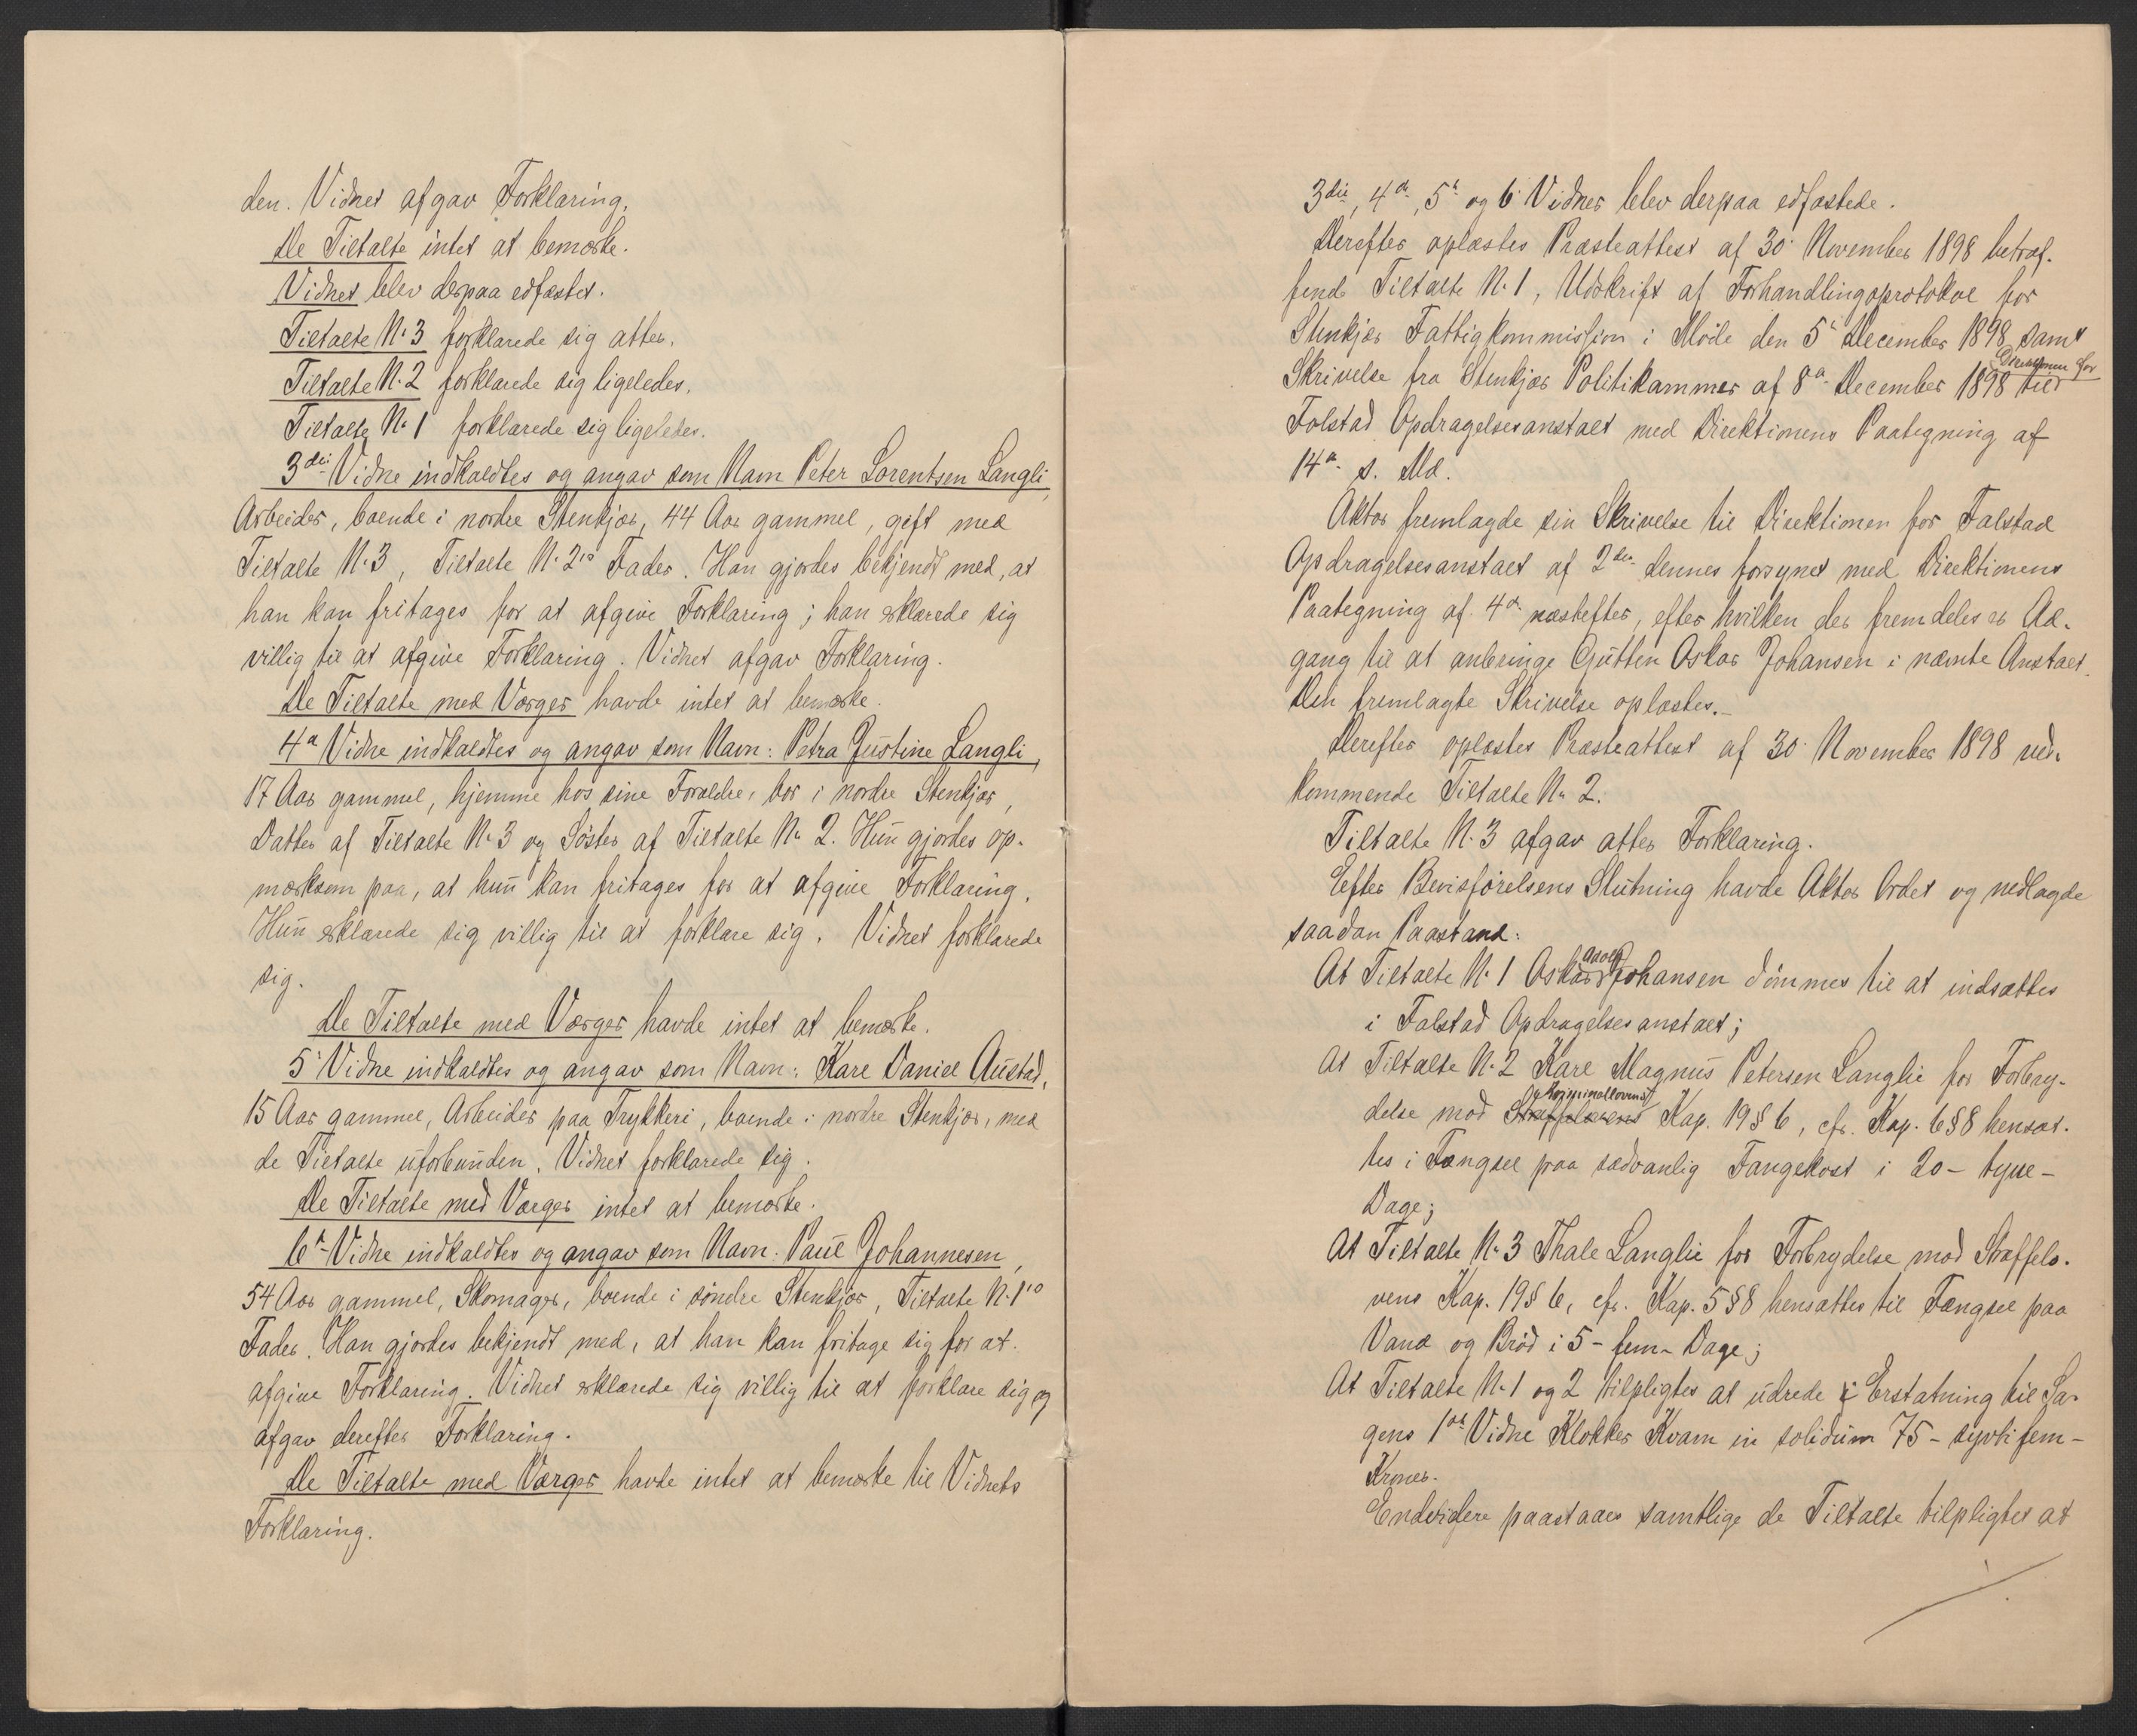 den. Vidnet afgav Forklaring.
De Tiltalte intet at bemærke.
Vidnet blev derpaa edfæstet.
Tiltalte N. 3 forklarede sig atter.
Tiltalte N. 2 forklarede sig ligeledes.
Tiltalte N. 1 forklarede sig ligeledes.
3die Vidne indkaldtes og angav som Navn Peter Lorentsen Langli,
Arbeider, boende i nordre Stenkjær, 44 Aar gammel, gift med
Tiltalte N. 3, Tiltalte N. 2's Fader. Han gjordes bekjendt med, at
han kan fritages for at afgive Forklaring; han erklærede sig
villig til at afgive Forklaring. Vidnet afgav Forklaring.
De Tiltalte med Værger havde intet at bemærke.
4de Vidne indkaldtes og angav som Navn: Petra Justine Langli,
17 Aar gammel, hjemme hos sine Forældre, bor i nordre Stenkjær,
Datter af Tiltalte N. 3 og Søster af Tiltalte N. 2. Hun gjordes op-
mærksom paa, at hun kan fritages for at afgive Forklaring.
Hun erklærede sig villig til at forklare sig. Vidnet forklarede
sig.
De Tiltalte med Værger havde intet at bemærke.
5' Vidne indkaldtes og angav som Navn: Karl Daniel Austad,
15 Aar gammel, Arbeider paa Trykkeri, boende i nordre Stenkjær, med
de Tiltalte uforbunden. Vidnet forklarede sig.
De Tiltalte med Værger intet at bemærke.
6te Vidne indkaldtes og angav som Navn: Paul Johannesen,
54 Aar gammel, Skomager, boende i søndre Stenkjær, Tiltalte N. 1's
Fader. Han gjordes bekjendt med, at han kan fritage sig for at
afgive Forklaring. Vidnet erklærede sig villig til at forklare sig og
afgav derefter Forklaring.
De Tiltalte med Værger havde intet at bemærke til Vidnets
Forklaring.
3die, 4de, 5te og 6' Vidner blev derpaa edfæstede.
Derefter oplæstes Præsteattest af 30' November 1898 betræf-
fende Tiltalte N. 1, Udskrift af Forhandlingsprotokol for
Stenkjær Fattigkommission i Møde den 5te December 1898 samt
Skrivelse fra Stenkjær Politikammer af 8de December 1898 til Direktionen for
Falstad Opdragelsesanstalt med Direktionens Paategning af
14de s. Md.
Aktor fremlagde sin Skrivelse til Direktionen for Falstad
Opdragelsesanstalt af 2den dennes forsynet med Direktionens
Paategning af 4de næstefter, efter hvilken der fremdeles er Ad-
gang til at anbringe Gutten Oskar Johansen i nævnte Anstalt.
Den fremlagte Skrivelse oplæstes.-
Derefter oplæstes Præsteattest af 30' November 1898 ved-
kommende Tiltalte N. 2.
Tiltalte N. 3 afgav atter Forklaring.
Efter Bevisførelsens Slutning havde Aktor Ordet og nedlagde
saadan Paastand:
At Tiltalte N. 1 Oskar Adolf Johansen dømmes til at indsættes
i Falstad Opdragelsesanstalt;
At Tiltalte N. 2 Karl Magnus Petersen Langlie for Forbry-
delse mod Straffelovens Kriminallovens Kap. 19 § 6, cfr. Kap. 6 § 8 hensæt-
tes i Fængsel paa sædvanlig Fangekost i 20 - tyve -
Dage;
At Tiltalte N. 3 Thale Langlie for Forbrydelse mod Straffelo-
vens Kap. 19 § 6, cfr. Kap. 5 § 8 hensættes til Fængsel paa
Vand og Brød i 5 - fem - Dage;
At Tiltalte N. 1 og 2 tilpligtes at udrede i Erstatning til Sa-
gens 1ste Vidne Klokker Kvam in solidum 75 - sytti fem -
Kroner.
Endvidere paastaaes samtlige de Tiltalte tilpligtet at